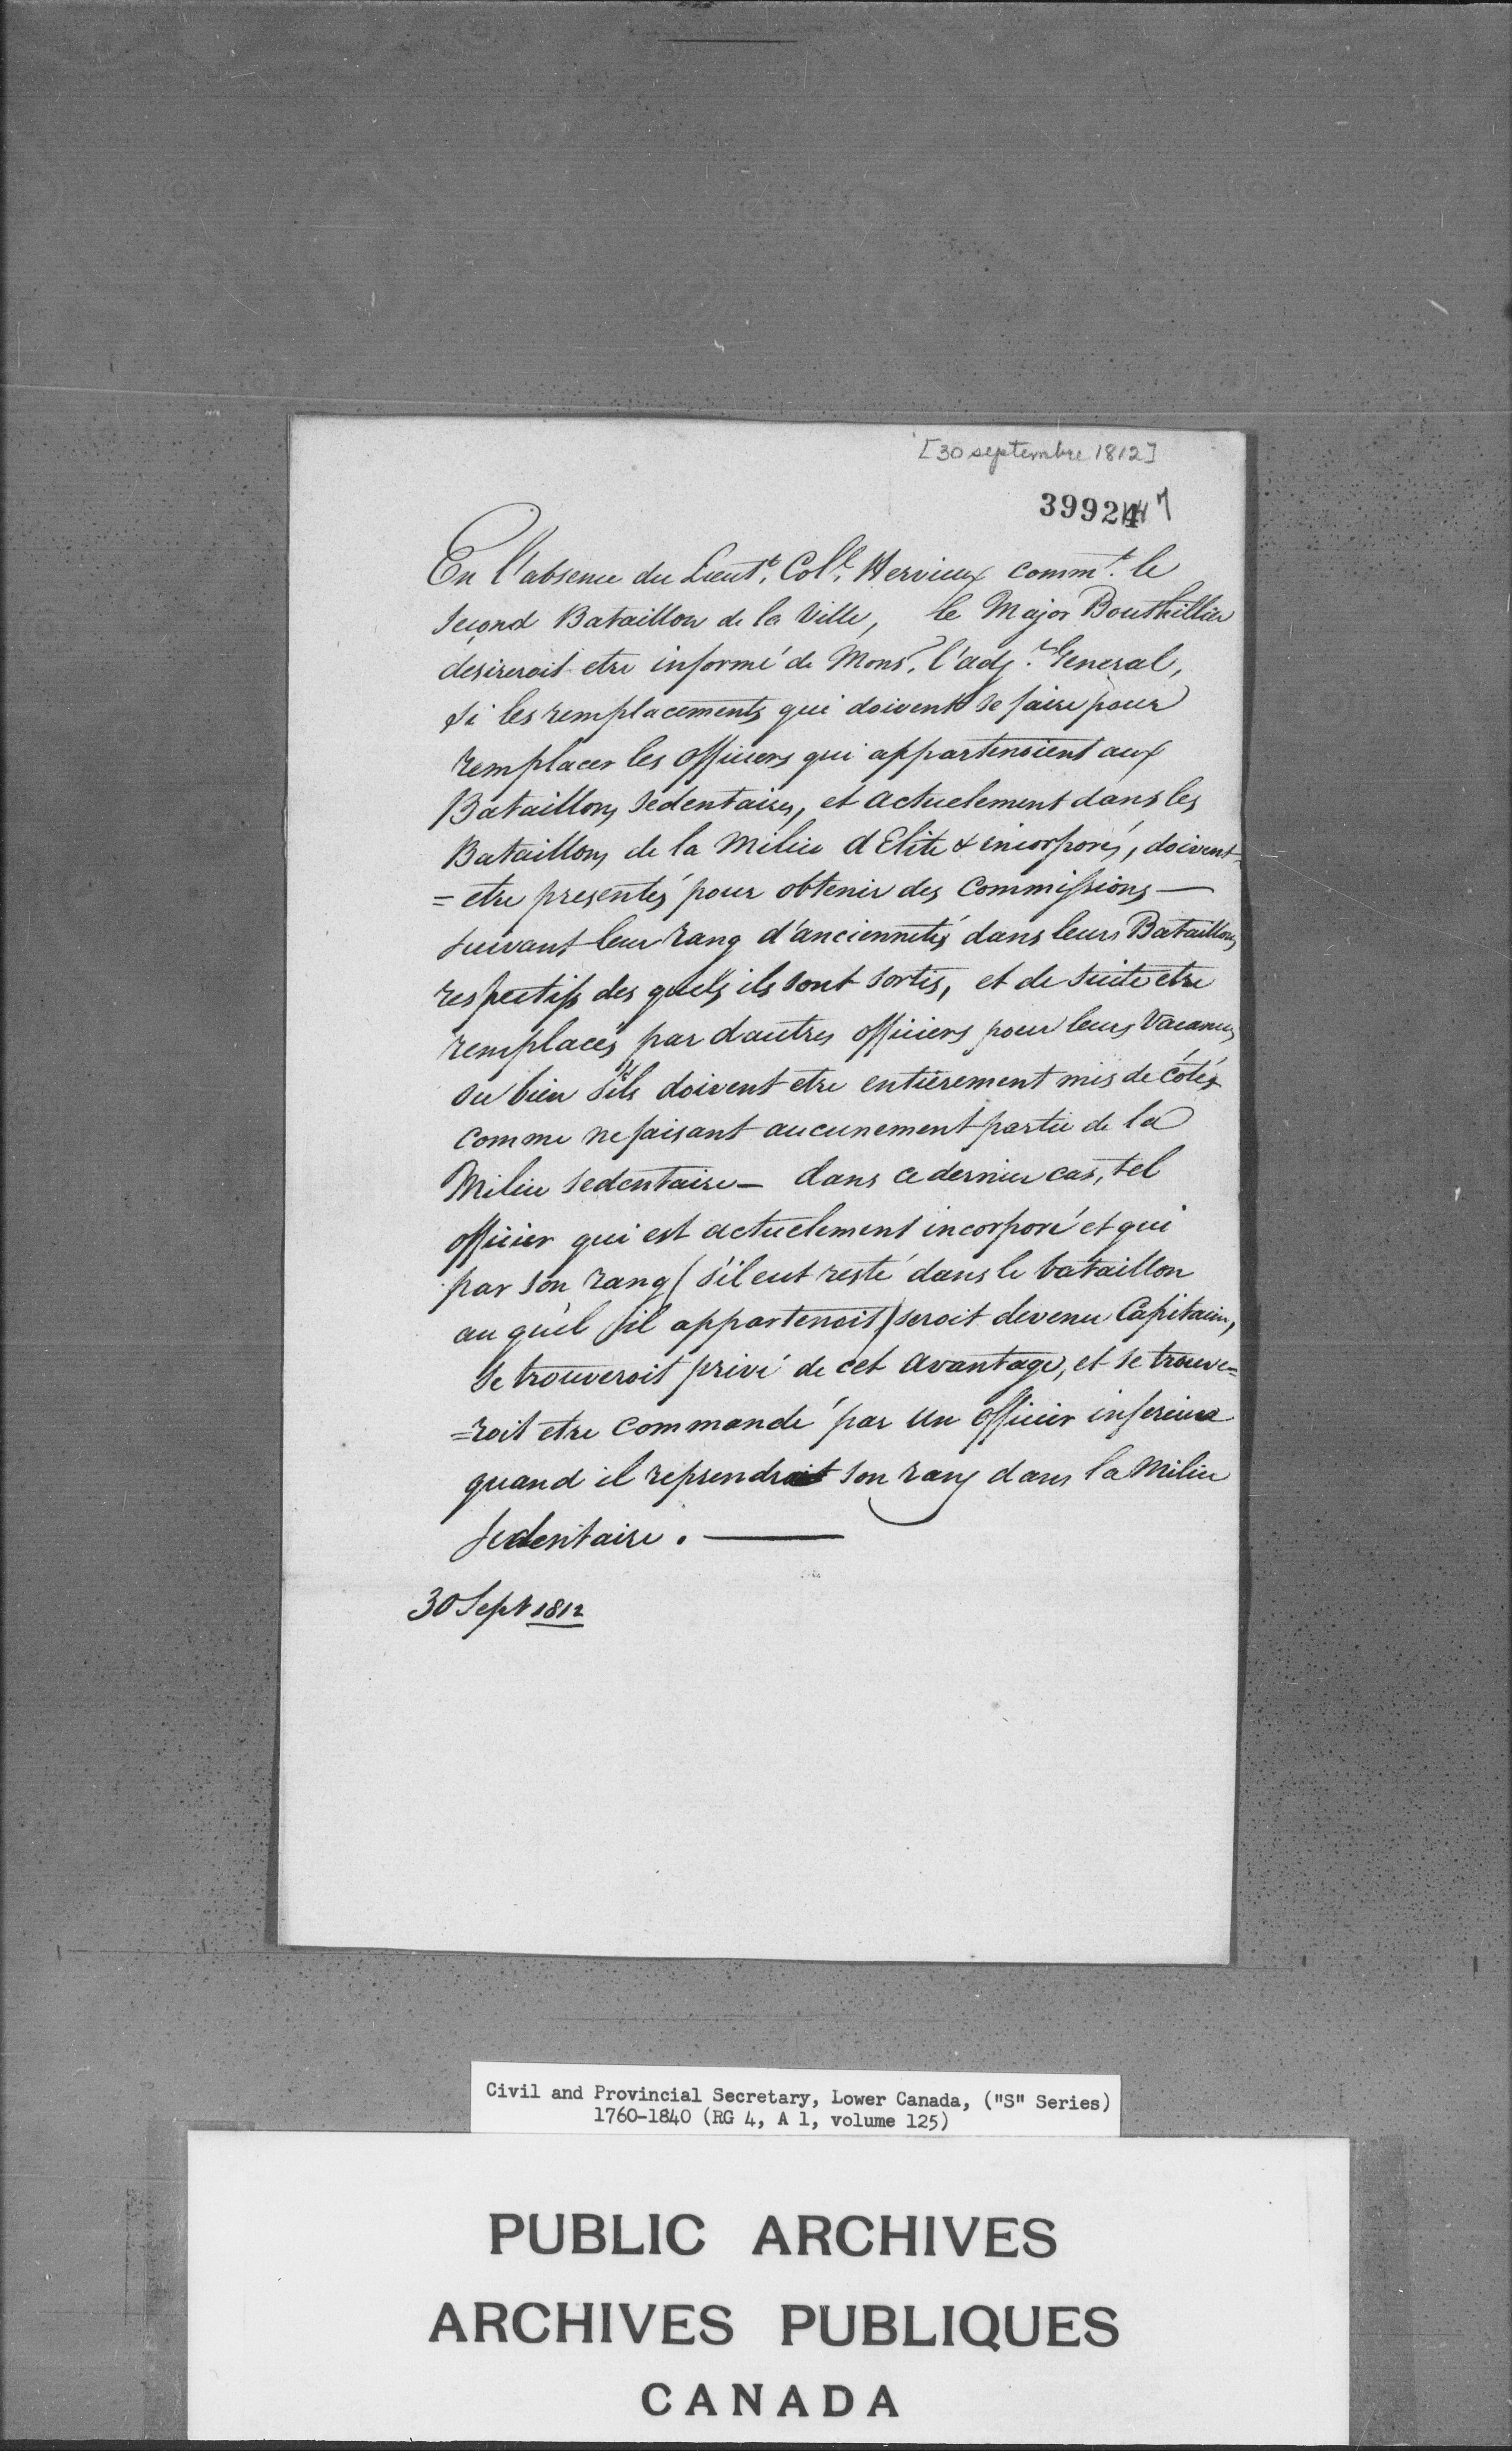 [30 septembre 1812]
39924 7
En l'absence du Lieut.t Col.l Hervieux comm.t le
Second Bataillon de la Ville, le Major Bouthillier
desireroit etre informé de Mons.r l'adj.t General,
si les remplacements qui doivent se faire pour
remplacer les officiers qui appartenoient aux
Bataillons sedentaires, et actuelement dans les
Bataillons de la Milice d'Elite & incorporés, doivent=
=etre presentés pour obtenir des Commissions —
suivant leur rang d'anciennetés dans leurs Bataillons
respectifs des quels ils sont sortis, et de suite etre
remplacés par dautres officiers pour leurs Vacances
ou bien s'ils doivent etre entièrement mis de cotés
comme ne faisant aucunement partie de la
Milice sedentaire — dans ce dernier cas, tel
officier qui est actuelement incorporé et qui
par son rang (s'il eut resté dans le bataillon
au quel il appartenoit) seroit devenu Capitaine,
se trouveroit privé de cet avantage, et se trouve=
=roit etre commandé par un officier inferieur
quand il reprendroit son rang dans la Milice
sedentaire. —
30 Sept 1812
Civil and Provincial Secretary, Lower Canada, ("S" Series)
1760-1840 (RG 4, A 1, volume 125)
PUBLIC ARCHIVES
ARCHIVES PUBLIQUES
CANADA